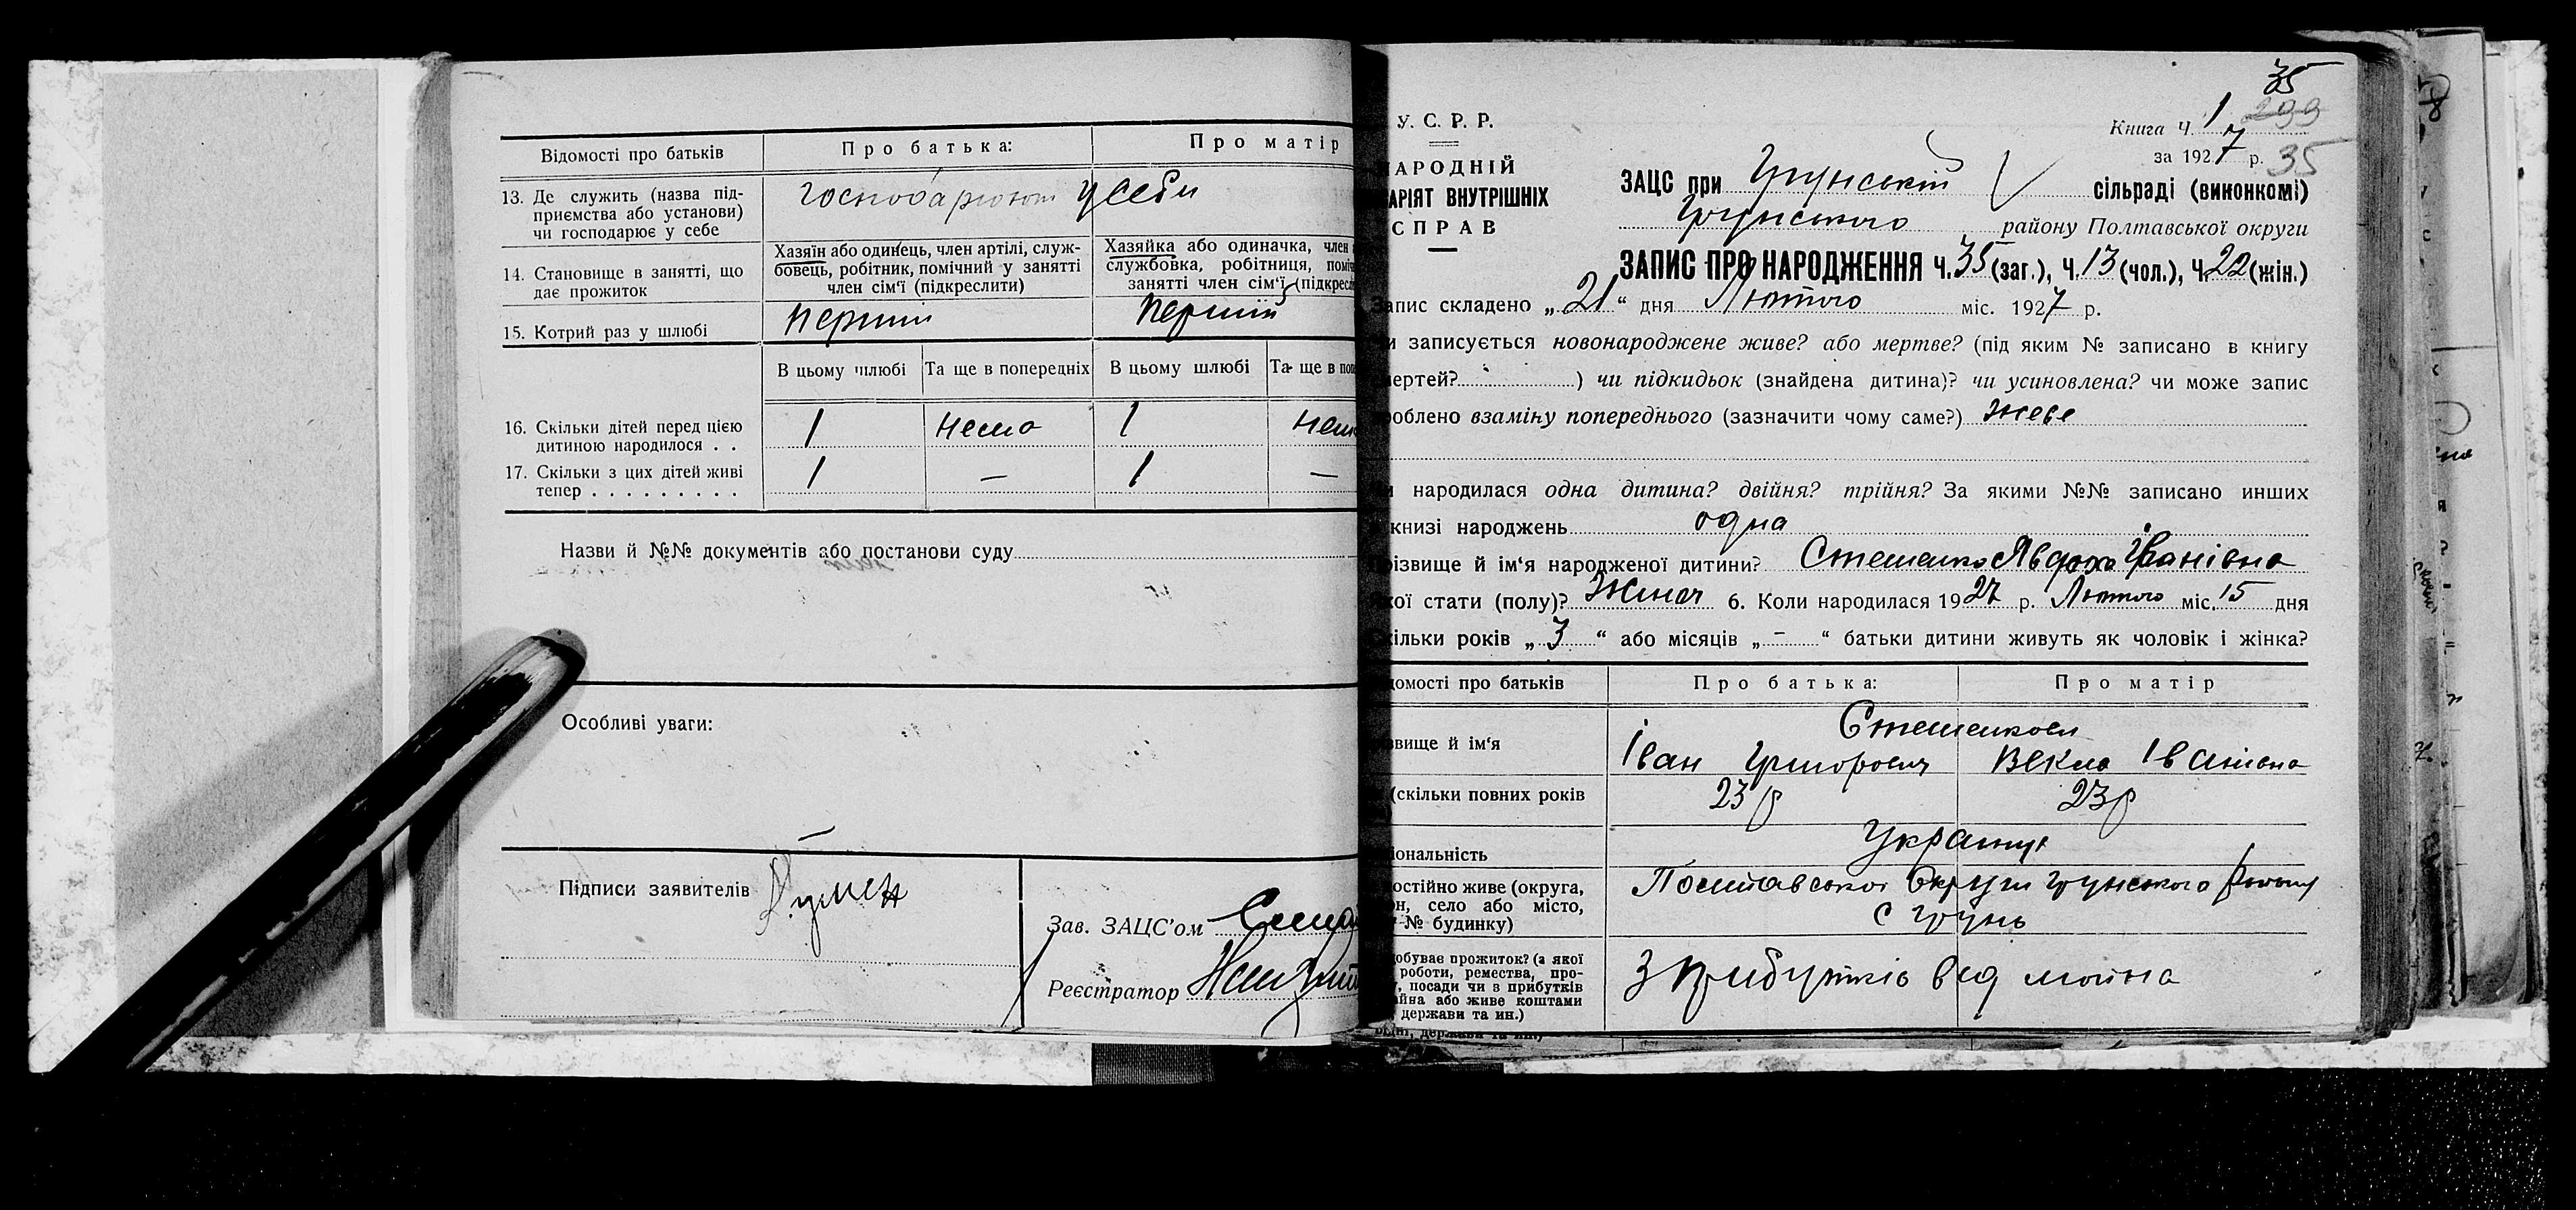 Відомості про батьків
Про батька:
Про матір
13. Де служить (назва під-
приємства або установи)
чи господарює у себе
господарюют у себи
14. Становище в занятті, що
дає прожиток
Хазяїн або одинець, член артілі, служ-
бовець, робітник, помічний у занятті
член сім'ї (підкреслити)
Хазяйка або одиначка, член
службовка, робітниця, поміч
занятті член сім'ї (підкресл
15. Котрий раз у шлюбі
перший
перший
В цьому шлюбі
Та ще в попередніх
В цьому шлюбі
Та ще в поп
16. Скільки дітей перед цією
дитиною народилося . .
1
нема
1
нем
17. Скільки з цих дітей живі
тепер . . . . . . . . .
1
—
1
—
Назви й №№ документів або постанови суду
Особливі уваги:
Підписи заявителів
Зав. ЗАЦС'ом
Реєстратор
35
У. С. Р. Р.
Книга Ч. 1 299
за 1927 р. 35
НАРОДНІЙ
АРІЯТ ВНУТРІШНІХ
СПРАВ
ЗАЦС при Грунській сільраді (виконкомі)
Грунського району Полтавської округи
ЗАПИС ПРО НАРОДЖЕННЯ Ч. 35 (заг.), Ч. 13 (чол.), Ч. 22 (жін.)
Запис складено „21“ дня Лютого міс. 1927 р.
и записується новонароджене живе? або мертве? (під яким № записано в книгу
мертей? ) чи підкидьок (знайдена дитина)? чи усиновлена? чи може запис
роблено взаміну попереднього (зазначити чому саме?) живе
и народилася одна дитина? двійня? трійня? За якими №№ записано инших
книзі народжень одна
різвище й ім'я народженої дитини? Стешенко Явдоха Іванівна
кої стати (полу)? Жіноч 6. Коли народилася 1927 р. Лютого міс. 15 дня
кільки років „3“ або місяців „-“ батьки дитини живуть як чоловік і жінка?
домості про батьків
Про батька:
Про матір
звище й ім'я
Стешенкови
Іван Григорович
Векла Іванівна
(скільки повних років
23 р
23 р
іональність
Украинці
остійно живе (округа,
он, село або місто,
№ будинку)
Полтавської Округи Грунського Району
с Грунь
обуває прожиток? (з якої
роботи, ремества, про-
, посади чи з прибутків
айна або живе коштами
держави та ин.)
З прибутків від майна